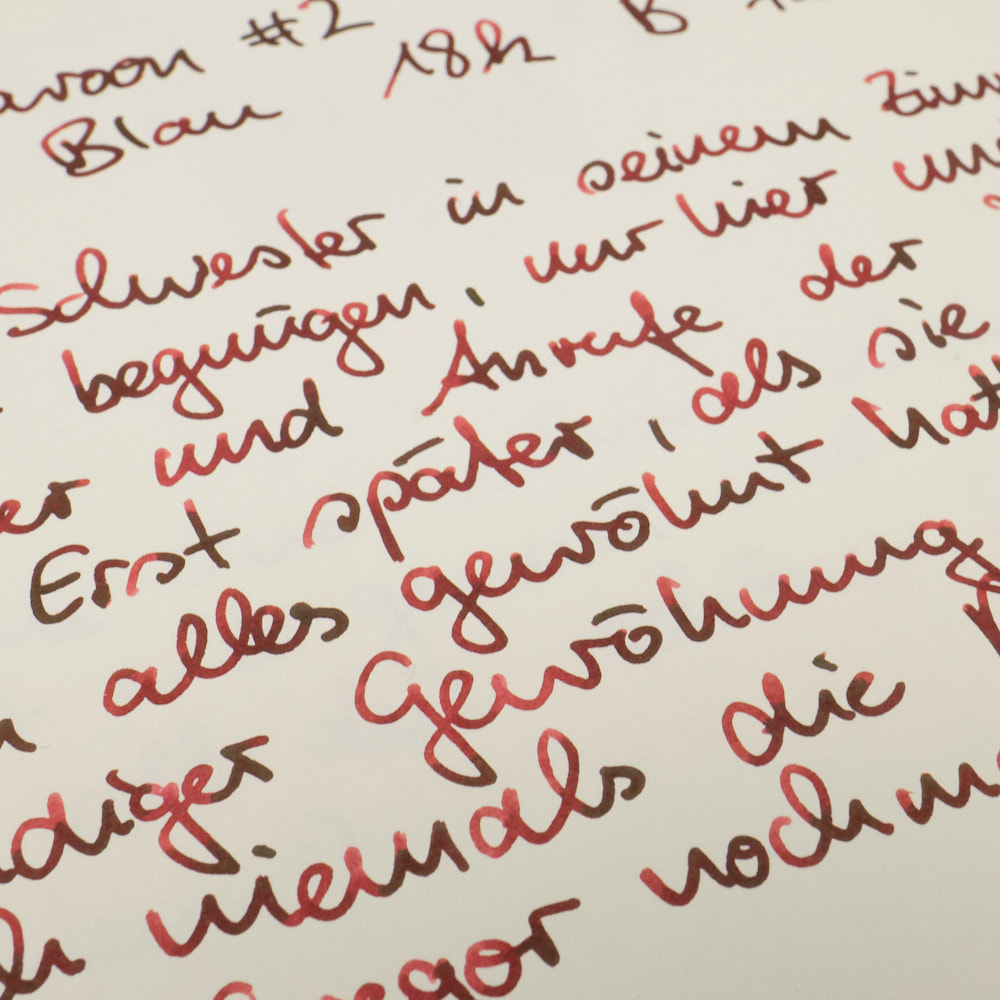 aroon #2
Blau 18h B
Schwester in seinem Zimm
begnügen, nur hier un
er und Anrufe der
Erst später, als sie
alles gewöhnt hatt
ndiger Gewöhnung
niemals die
regor nochm